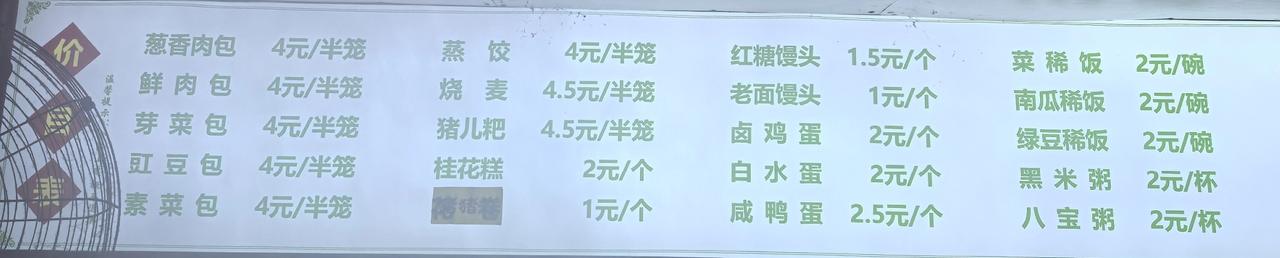 价
温馨提示:
葱香肉包 4元/半笼
鲜肉包 4元/半笼
芽菜包 4元/半笼
豇豆包 4元/半笼
素菜包 4元/半笼
蒸饺 4元/半笼
烧麦 4.5元/半笼
猪儿粑 4.5元/半笼
桂花糕 2元/个
1元/个
红糖馒头 1.5元/个
老面馒头 1元/个
卤鸡蛋 2元/个
白水蛋 2元/个
咸鸭蛋 2.5元/个
菜稀饭 2元/碗
南瓜稀饭 2元/碗
绿豆稀饭 2元/碗
黑米粥 2元/杯
八宝粥 2元/杯